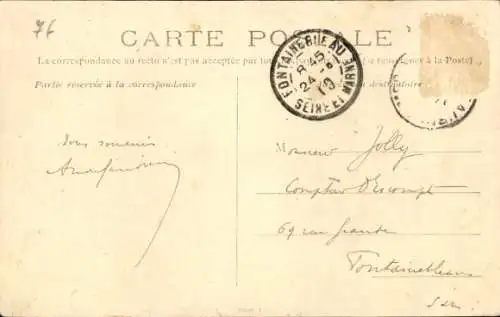 76
CARTE POSTALE
La correspondance au recto n'est pas acceptée par tous
(Se renseigner à la Poste)
Partie réservée à la correspondance
destinataire
FONTAINEBLEAU
SEINE ET MARNE
8 45
24
10
M
Monsieur Jolly
Comptoir d'Escompte
69 rue Grande
Fontainebleau